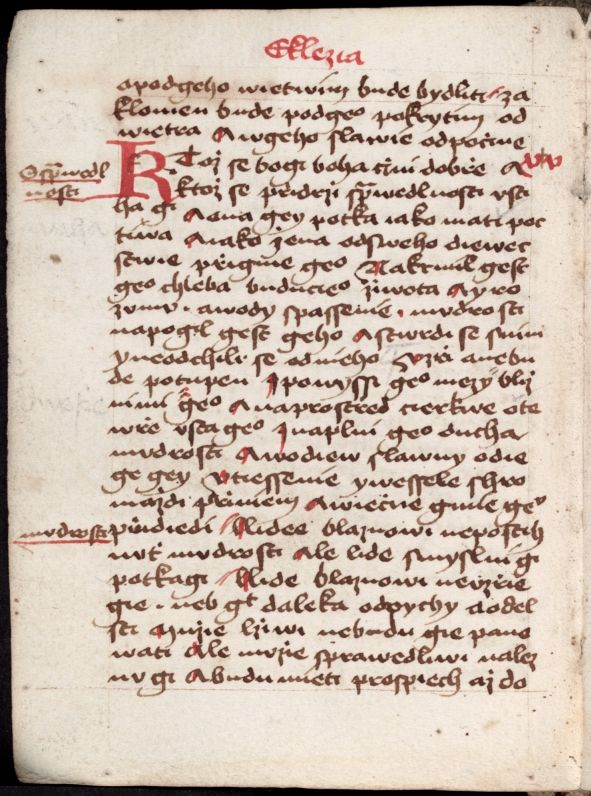 Eklezia
apodgeho wietwim bude bydliti za
klonien bude podgeo pokrytim od
wietra A wgeho slawie odpocine
KToz se bogi boha czini dobrze A xv
Osprawedl
nosti
ktoz se przidrzi sprawedlnosti vsti
ha gi
Aona gey potka iako mati poc
tiwa A iako zena odsweho diewec
stwie przigme geo Nakrmil gest
geo chleba buduczieo ziwota Ayro
zumu . awody spassenie . mudrosti
napogil gest geho Astwrdi se snim
yneodchili se odnieho Vzrzi anebu
de potupen Jponyssi geo mezy bliz
nimi geo Anaprostred cierkwe ote
wrze vsta geo Jnaplni geo ducha
mudrosti Awodiew slawny odie
ge gey Vtiessenie ywessele schro
mazdi przi niem Awiecne gmie geo
mudrosti
przidiedi Lidee blaznowi neposti
nu mudrosti Ale lide smyslni gi
potkagi Lide blaznowi nevzrzie
gie . neb gt daleka odpychy aodel
sti Muzie lziwi nebudu gie pano
wati Ale muzie sprawedliwi nalez
nu gi Abudu mieti prospiech az do